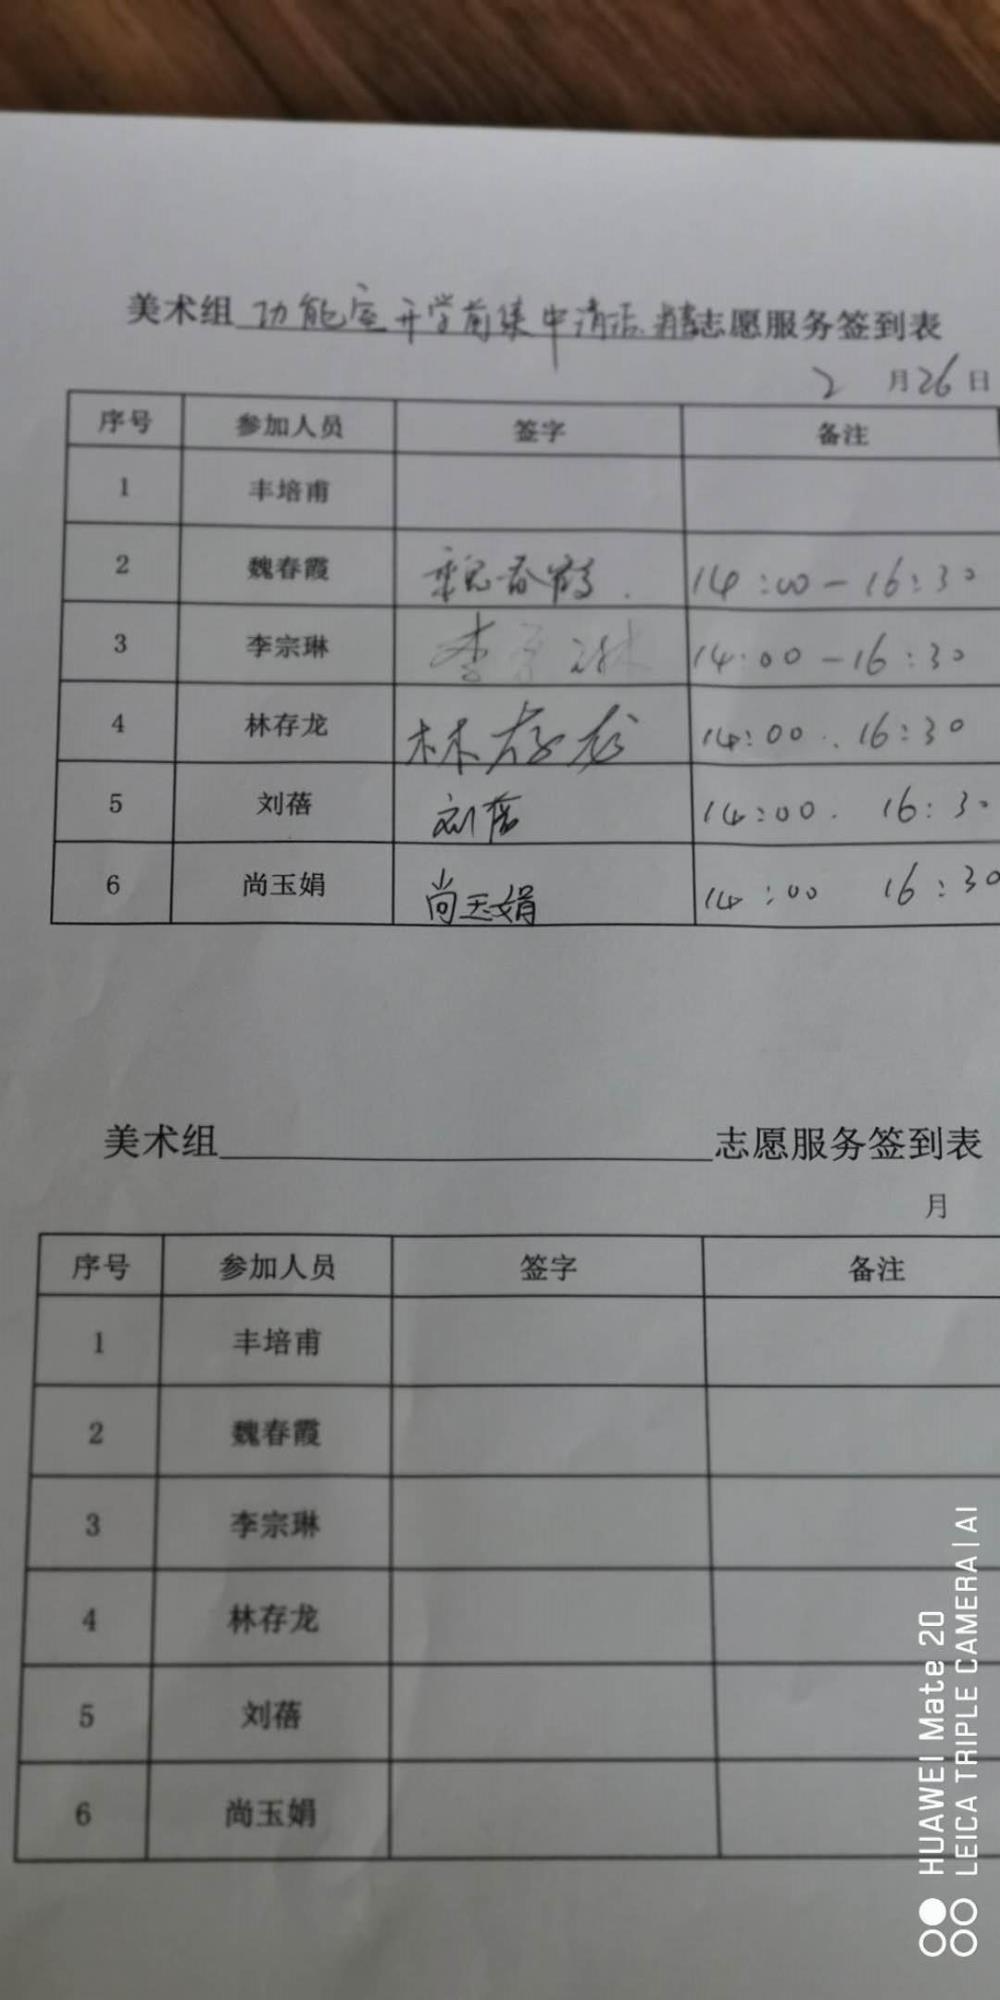 美术组 功能室开学前集中清洁 志愿服务签到表
2 月 26 日
序号 参加人员 签字 备注
1 丰培甫
2 魏春霞 魏春霞 14:00-16:30
3 李宗琳 李宗琳 14:00-16:30
4 林存龙 林存龙 14:00 16:30
5 刘蓓 刘蓓 14:00. 16:30
6 尚玉娟 尚玉娟 14:00 16:30
美术组 志愿服务签到表
月
序号 参加人员 签字 备注
1 丰培甫
2 魏春霞
3 李宗琳
4 林存龙
5 刘蓓
6 尚玉娟
HUAWEI Mate 20
LEICA TRIPLE CAMERA | AI